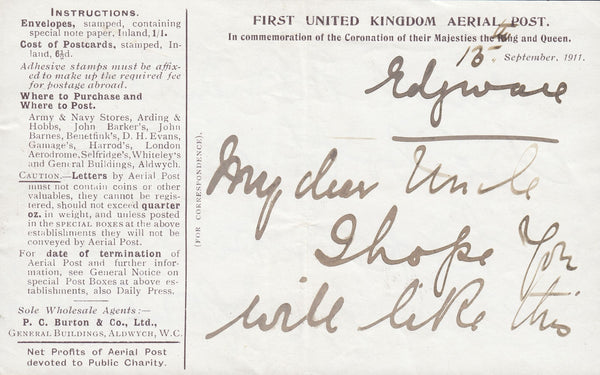 INSTRUCTIONS.
Envelopes, stamped, containing
special note paper, Inland, 1/1.
Cost of Postcards, stamped, In-
land, 6½d.
Adhesive stamps must be affix-
ed to make up the required fee
for postage abroad.
Where to Purchase and
Where to Post.
Army & Navy Stores, Arding &
Hobbs, John Barker's, John
Barnes, Benetfink's, D. H. Evans,
Gamage's, Harrod's, London
Aerodrome, Selfridge's, Whiteley's
and General Buildings, Aldwych.
CAUTION.—Letters by Aerial Post
must not contain coins or other
valuables, they cannot be regis-
tered, should not exceed quarter
oz. in weight, and unless posted
in the SPECIAL BOXES at the above
establishments they will not be
conveyed by Aerial Post.
For date of termination of
Aerial Post and further infor-
mation, see General Notice on
special Post Boxes at above es-
tablishments, also Daily Press.
Sole Wholesale Agents:—
P. C. Burton & Co., Ltd.,
GENERAL BUILDINGS, ALDWYCH, W.C.
Net Profits of Aerial Post
devoted to Public Charity.
(FOR CORRESPONDENCE).
FIRST UNITED KINGDOM AERIAL POST.
In commemoration of the Coronation of their Majesties the King and Queen.
15th September, 1911.
Edgware
My dear Uncle
I hope You
will like this